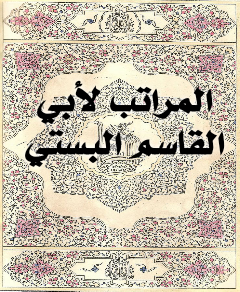 المراتب لأبي
القاسم البستي